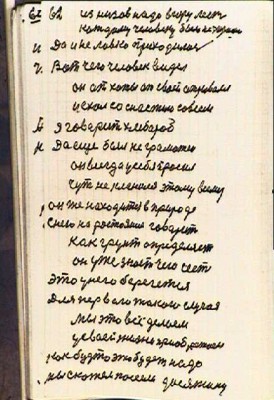 62 62 из низов надо вверх лесть
каждому человеку было
и Да и не ловко приходилось
У. Вот чего человек видел
он от хаты от своей оторвался
уехал со снастью совсем
я говорит хлебороб
и Да еще был не грамотен
он всегда у себя просил
чуть не кланился этому всему
он же находится в природе
с ним на ростояния говорит
как грунт определяет
он уже знает чего сеет
это у него бережется
Для первого такого случая
мы это всё делаем
у своей жизни приобретаем
как будто это будет надо
мы скажем посеем десятину